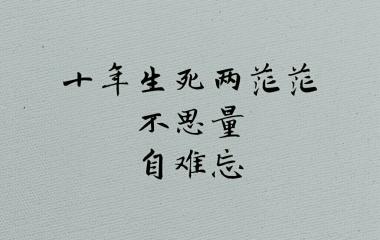 十年生死两茫茫
不思量
自难忘